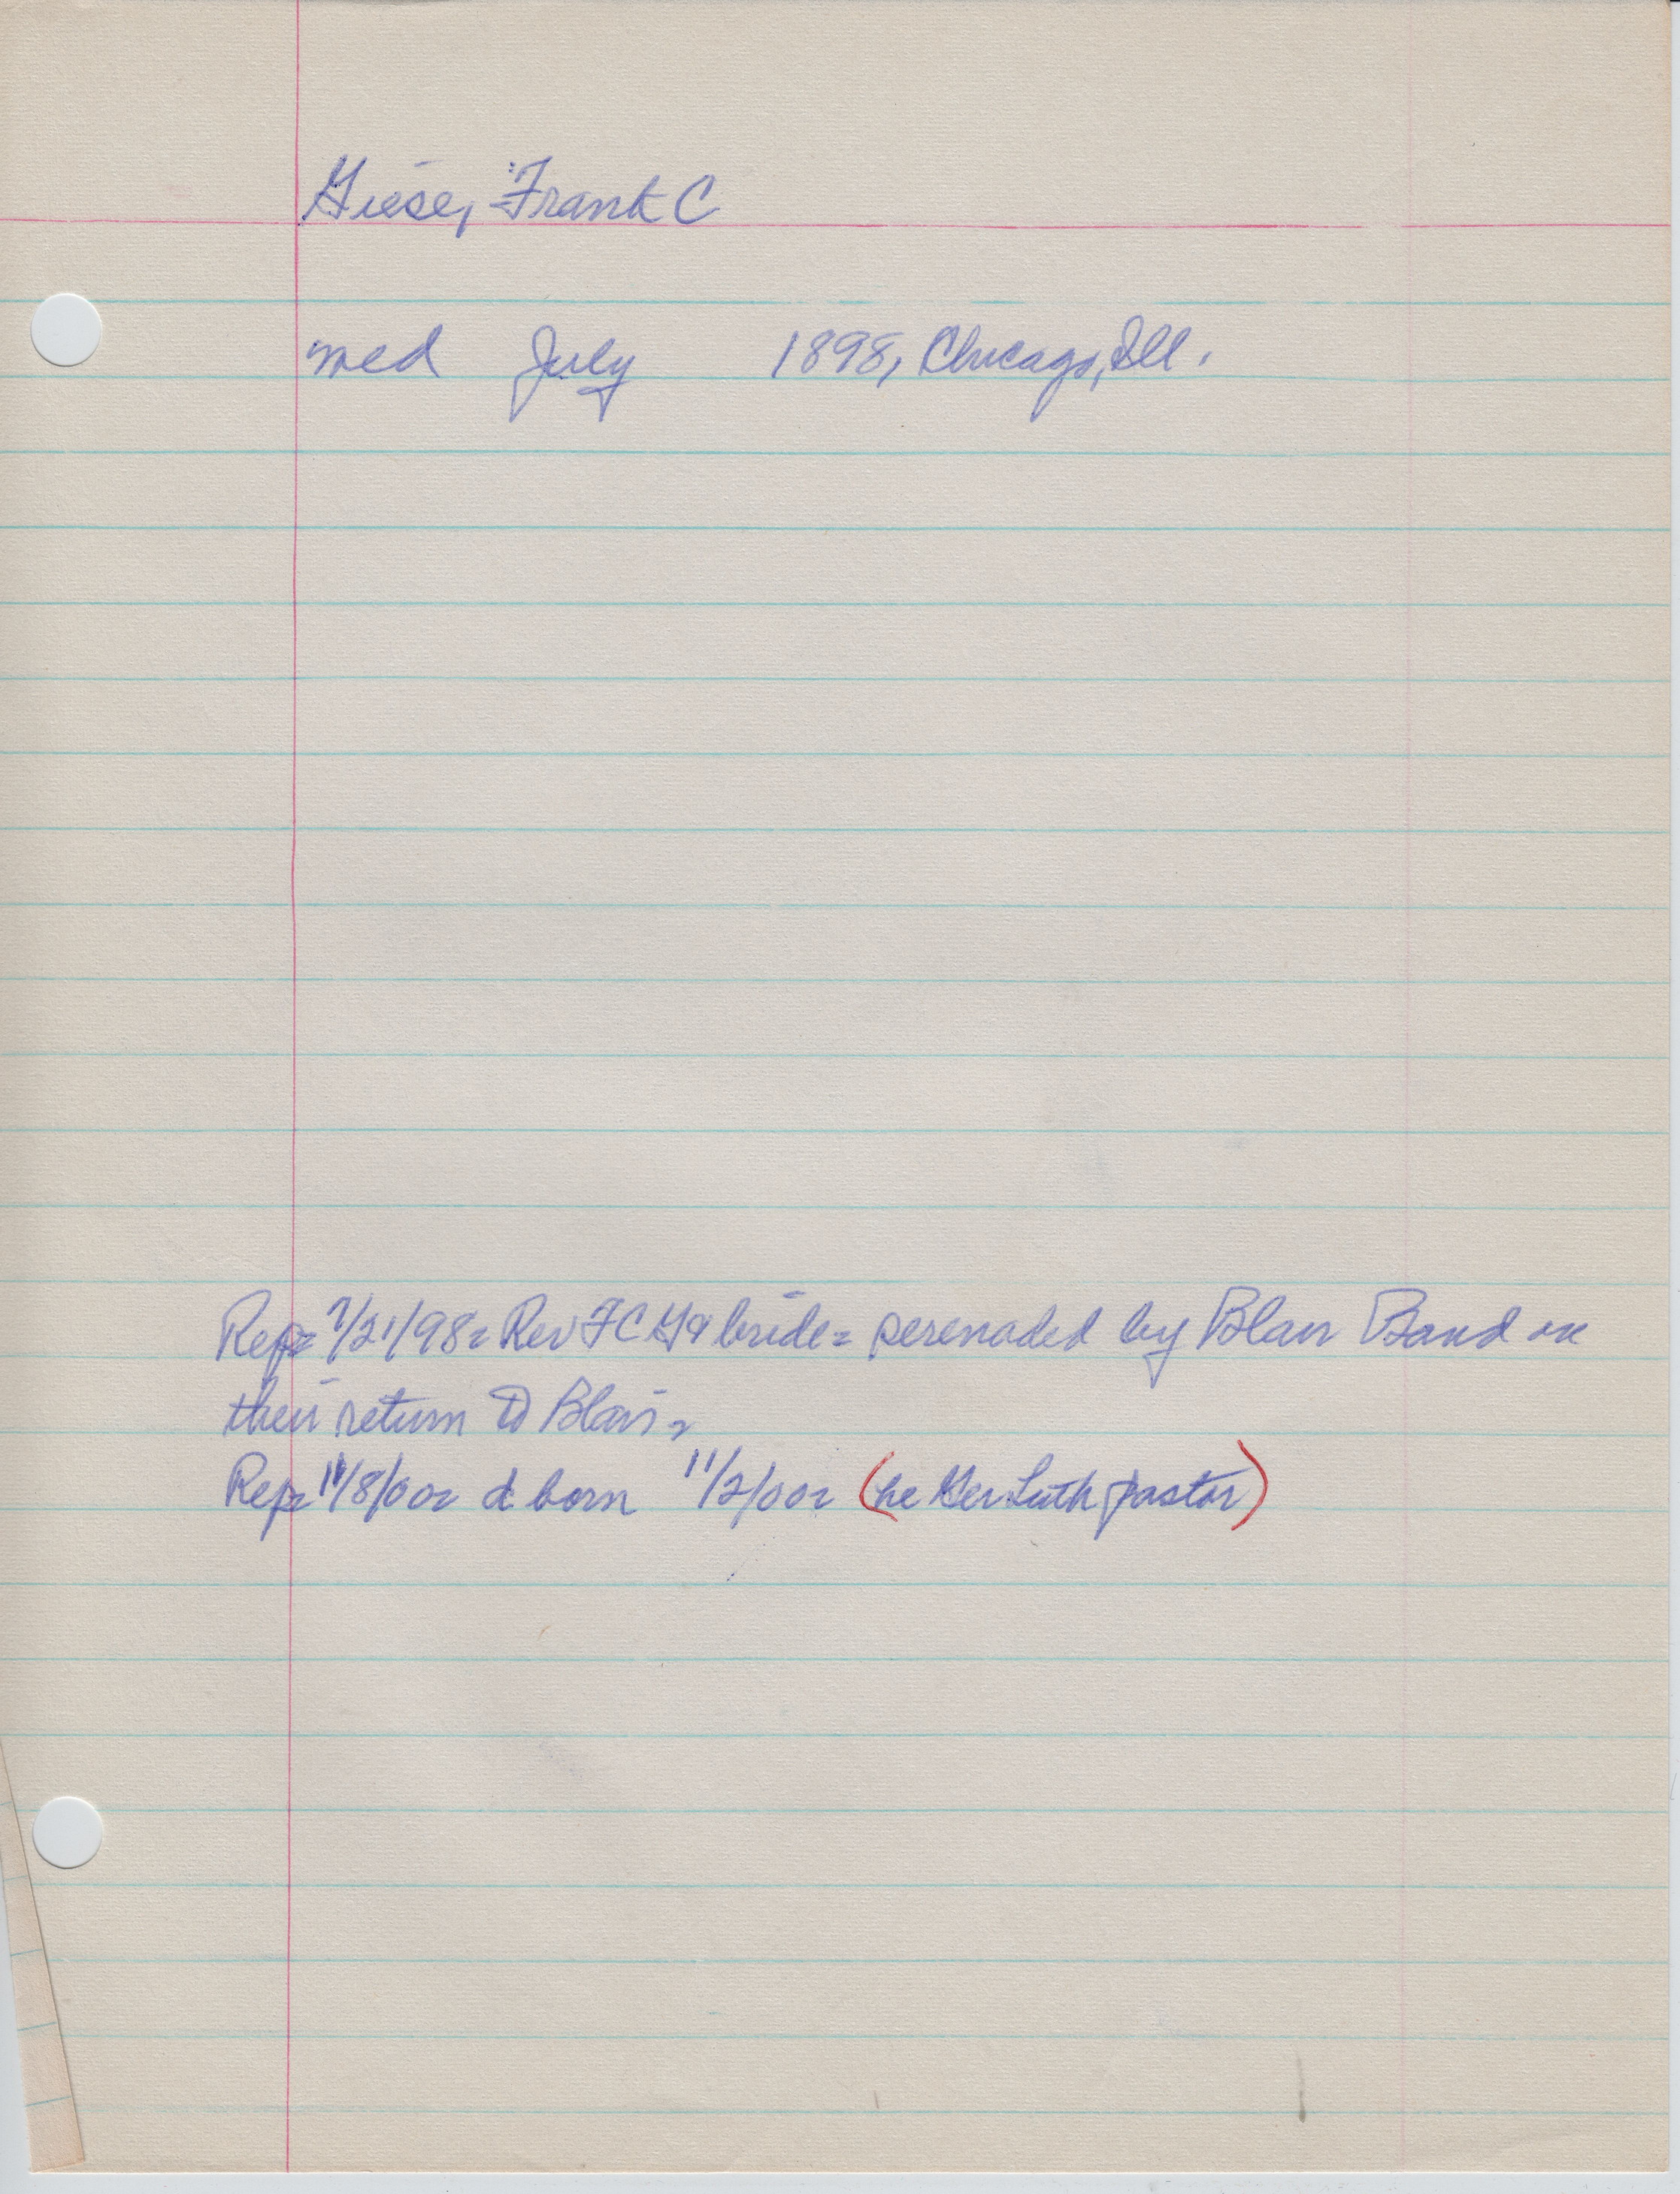 Giese, Frank C
med July 1898, Chicago, Ill.
Rep= 7/21/98= Rev FC G & bride= serenaded by Blair Band on
their return to Blair=
Rep= 11/8/00= d born 11/2/00= (he Ger Luth pastor)